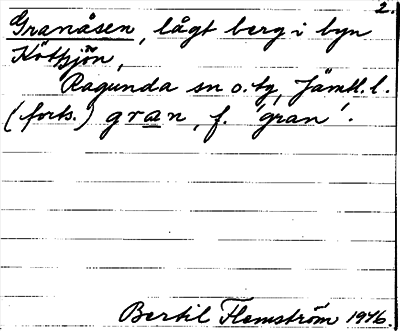 2.
Granåsen, lågt berg i byn
Köttsjön,
Ragunda sn o. tg, Jämtl. l.
(forts.) gran, f. 'gran'.
Bertil Flemström 1976.